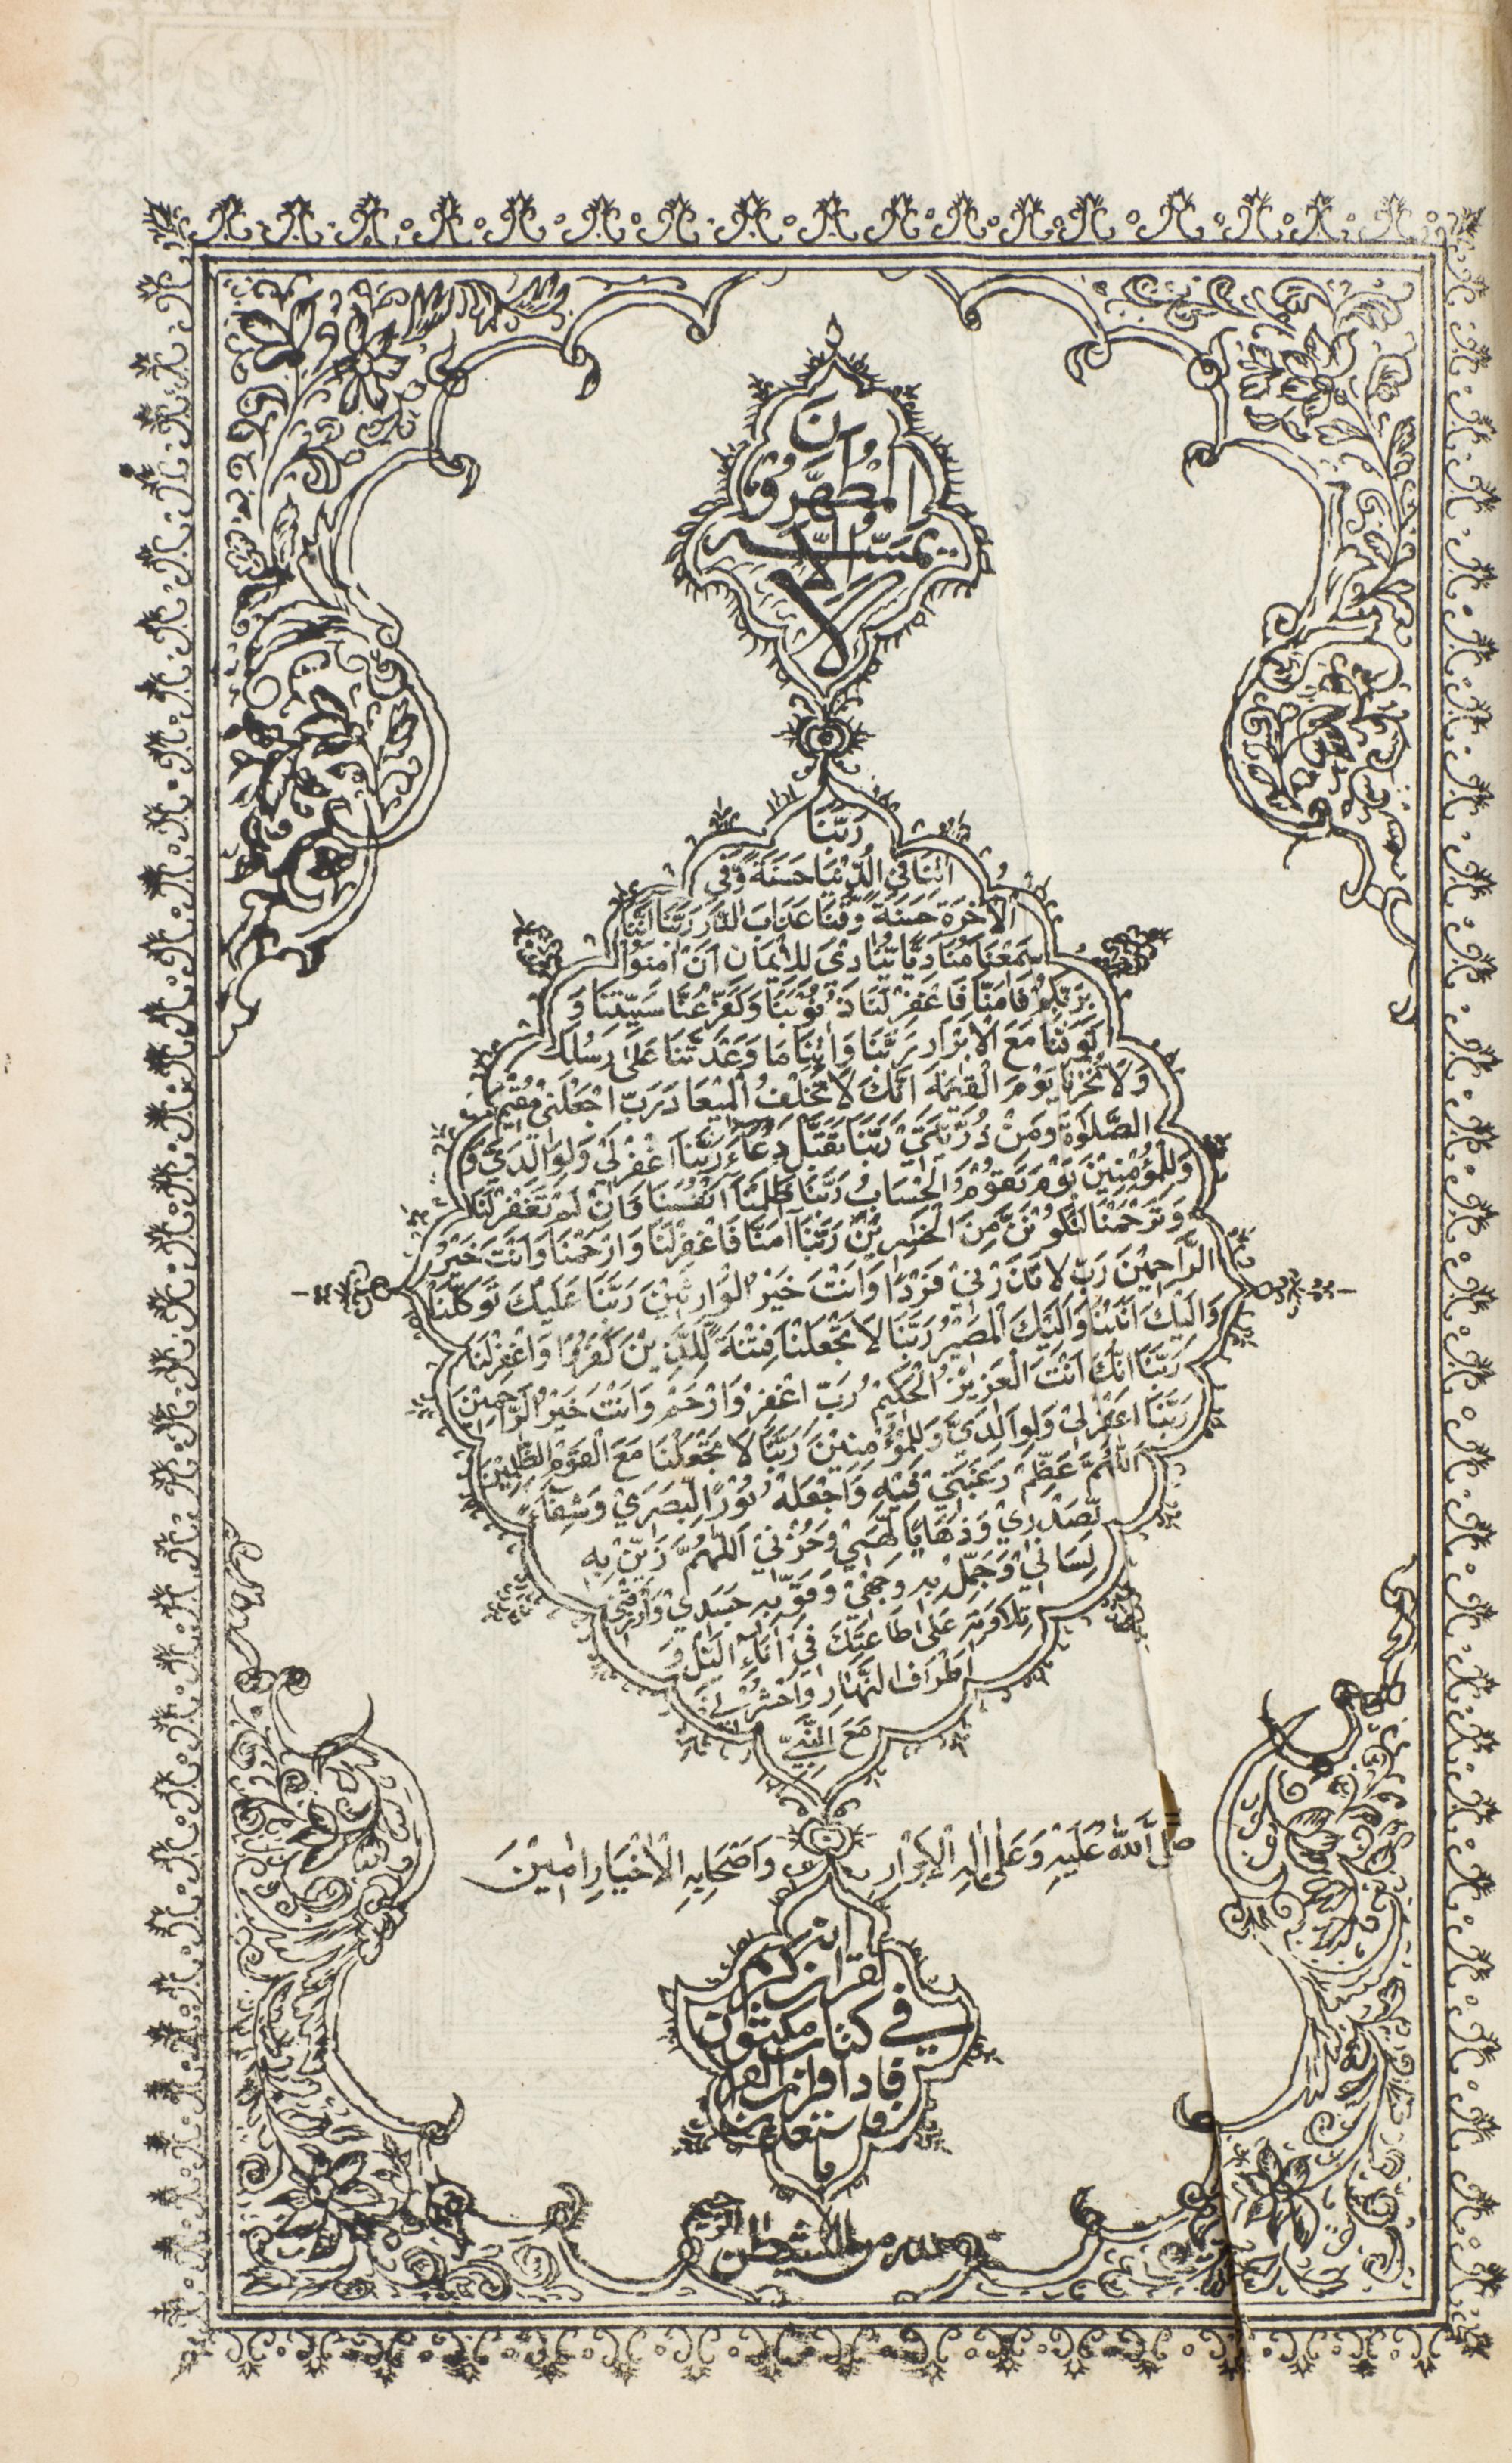 لا
يمسه الا
المطهرون
رَبَّنَا
اٰتِنَا فِي الدُّنْيَا حَسَنَةً وَّفِي
الْاٰخِرَةِ حَسَنَةً وَّقِنَا عَذَابَ النَّارِ رَبَّنَا اِنَّنَا
سَمِعْنَا مُنَادِيًا يُّنَادِيْ لِلْاِيْمَانِ اَنْ اٰمِنُوْا
بِرَبِّكُمْ فَاٰمَنَّا رَبَّنَا فَاغْفِرْ لَنَا ذُنُوْبَنَا وَكَفِّرْ عَنَّا سَيِّئٰتِنَا وَ
تَوَفَّنَا مَعَ الْاَبْرَارِ رَبَّنَا وَاٰتِنَا مَا وَعَدْتَّنَا عَلٰى رُسُلِكَ
وَلَا تُخْزِنَا يَوْمَ الْقِيٰمَةِ اِنَّكَ لَا تُخْلِفُ الْمِيْعَادَ رَبِّ اجْعَلْنِيْ مُقِيْمَ
الصَّلٰوةِ وَمِنْ ذُرِّيَّتِيْ رَبَّنَا تَقَبَّلْ دُعَاءِ رَبَّنَا اغْفِرْ لِيْ وَلِوَالِدَيَّ وَ
وَلِلْمُؤْمِنِيْنَ يَوْمَ يَقُوْمُ الْحِسَابُ رَبَّنَا ظَلَمْنَا اَنْفُسَنَا فَاِنْ لَمْ تَغْفِرْ لَنَا
وَتَرْحَمْنَا لَنَكُوْنَنَّ مِنَ الْخٰسِرِيْنَ رَبَّنَا اٰمَنَّا فَاغْفِرْ لَنَا وَارْحَمْنَا وَاَنْتَ خَيْرُ
الرَّاحِمِيْنَ رَبِّ لَا تَذَرْنِيْ فَرْدًا وَّاَنْتَ خَيْرُ الْوَارِثِيْنَ رَبَّنَا عَلَيْكَ تَوَكَّلْنَا
وَاِلَيْكَ اَنَبْنَا وَاِلَيْكَ الْمَصِيْرُ رَبَّنَا لَا تَجْعَلْنَا فِتْنَةً لِّلَّذِيْنَ كَفَرُوْا وَاغْفِرْ لَنَا
رَبَّنَا اِنَّكَ اَنْتَ الْعَزِيْزُ الْحَكِيْمُ رَبِّ اغْفِرْ وَارْحَمْ وَاَنْتَ خَيْرُ الرَّاحِمِيْنَ
رَبَّنَا اغْفِرْ لِيْ وَلِوَالِدَيَّ وَلِلْمُؤْمِنِيْنَ رَبَّنَا لَا تَجْعَلْنَا مَعَ الْقَوْمِ الظّٰلِمِيْنَ
اَللّٰهُمَّ عَظِّمْ رَغْبَتِيْ فِيْهِ وَاجْعَلْهُ نُوْرًا لِّبَصَرِيْ وَشِفَاءً
لِّصَدْرِيْ وَذِهَابًا لِّهَمِّيْ وَحُزْنِيْ اَللّٰهُمَّ زَيِّنْ بِهِ
لِسَانِيْ وَجَمِّلْ بِهِ وَجْهِيْ وَقَوِّ بِهِ جَسَدِيْ وَارْزُقْنِيْ
تِلَاوَتَهُ عَلٰى طَاعَتِكَ فِيْ اٰنَاءِ الَّيْلِ وَ
اَطْرَافِ النَّهَارِ وَاحْشُرْنِيْ
مَعَ النَّبِيِّ
صَلَّى اللّٰهُ عَلَيْهِ وَعَلٰى اٰلِهِ الْاَبْرَارِ وَاَصْحَابِهِ الْاَخْيَارِ اٰمِيْنَ
انه
لقران كريم
في كتاب مكنون
فاذا قرات القرا
ن فاستعذ
با
لله من الشيطن الرجيم